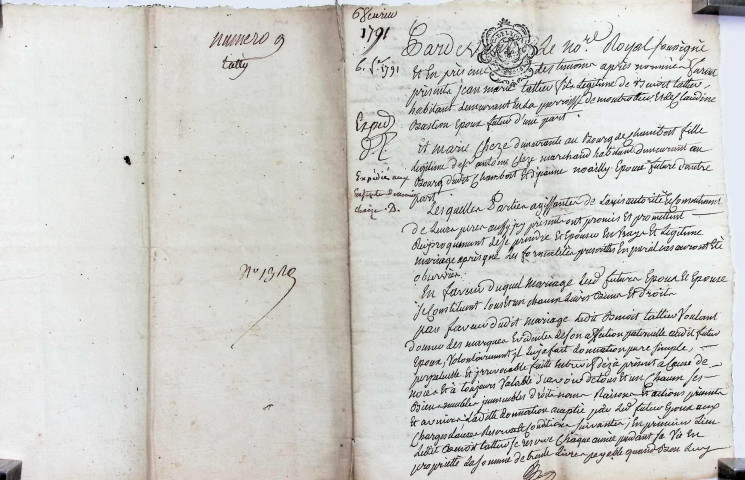 numero 9
tatty
No 1319
6 février
1791
6. f. 1791
Exped
Expédiée aux
Pardevant Le no.re Royal soussigné
et En présence des temoins après nommés furent
présents jean marie tattier fils Légitime de Benoit tattier
habitant demeurant en la parroisse de montrotier et de Claudine
Epoux futur d'une part
et marie Cheze demeurante au Bourg de chambost fille
Légitime de Antoine Cheze marchand habitant demeurant au
Bourg dudit Chambost et de jeanne noailly Epouse future d'autre
part
Lesquelles Parties agissantes de Lavis autorité et Consentement
de Leurs peres aussi icy présents ont promis et promettent
Réciproquement de se prendre et Epouser En vraye et Légitime
mariage après que les formalités prescrittes En pareil cas auront Eté
observées
En faveur duquel mariage Lesd. futurs Epoux et Epouse
se Constituent tous et un chacun Leurs Biens et Droits
par faveur dudit mariage Ledit Benoit tattier Voulant
donner des marques Evidentes de son affection paternelle audit futur
Epoux, Volontairement il Luy a fait donnation pure simple,
perpetuelle et irrevocable faitte Entrevifs dèjà présent a Cause de
noces et à toujours Valable Scavoir de tous et un Chacun ses
Biens meubles immeubles droits noms Raisons et actions présents
et avenir Laditte donnation acceptée par Led. futur Epoux aux
Charges Reserves et Conditions suivantes; En premier Lieu
Ledit Benoit tattier se réserve Chaque année pendant sa Vie En
propriété La somme de trente Livres payable quand Bon Luy